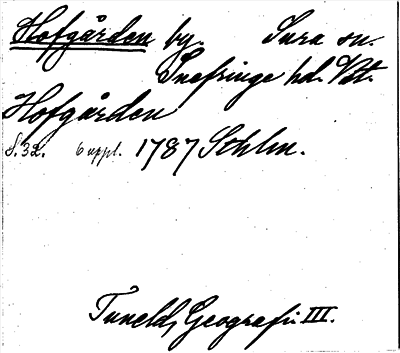 Hofgården by. Sura sn.
Snefringe hd. Vstm.
Hofgården
S. 32. 6 uppl. 1787 Sthlm.
Tuneld, Geografi III.